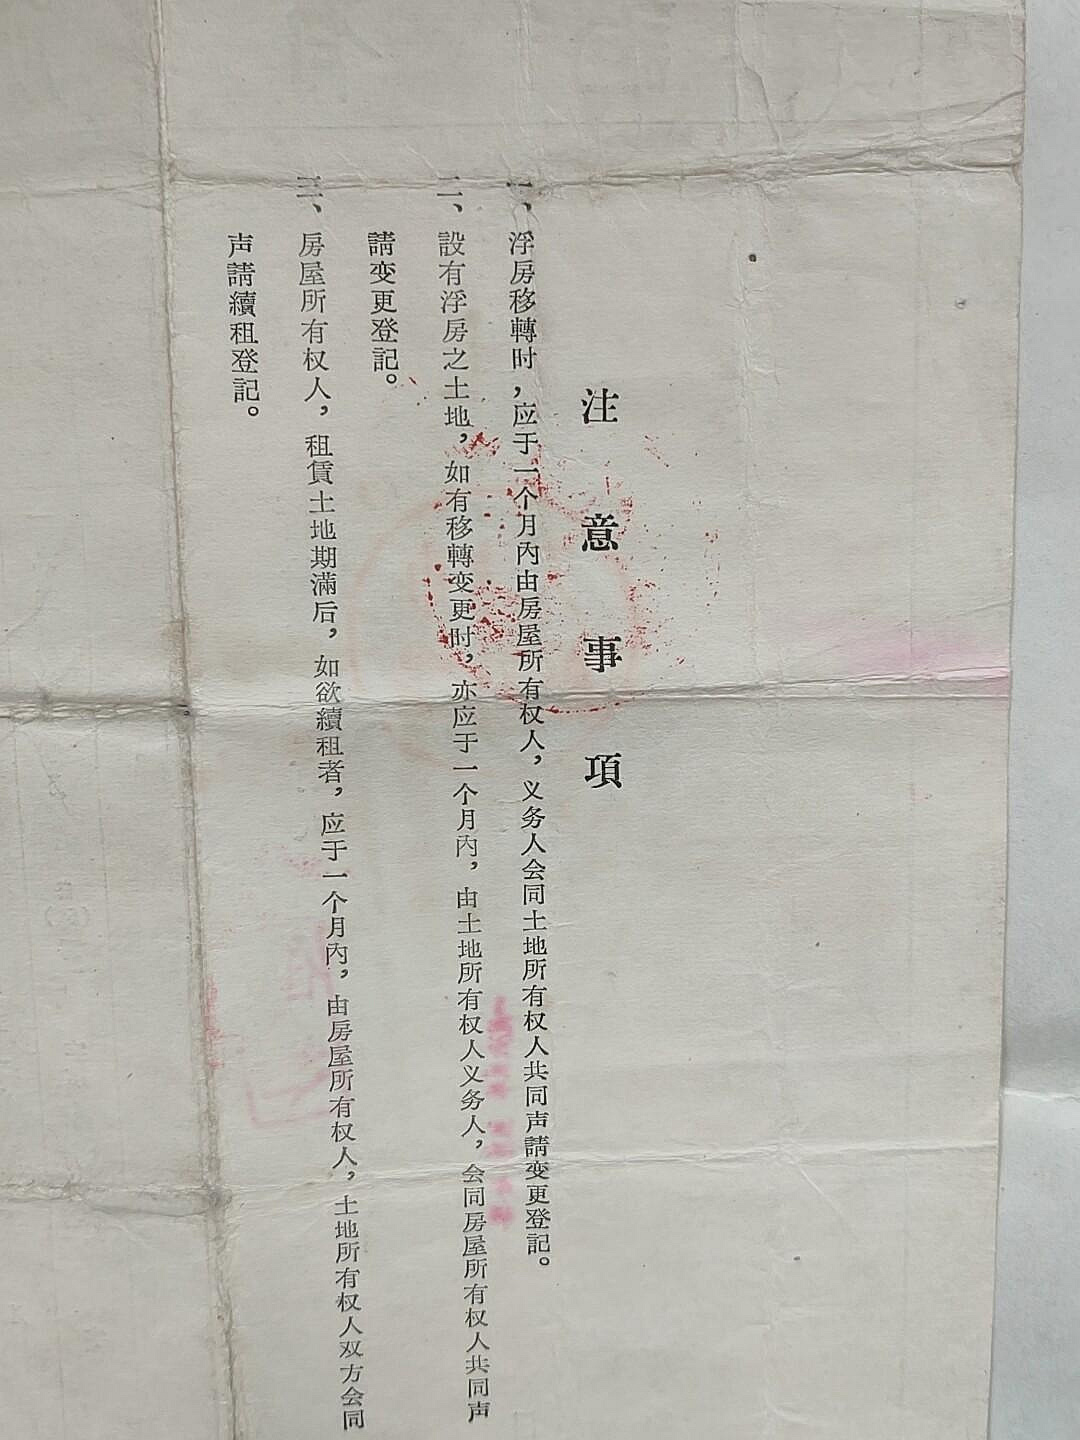 注意事項
一、浮房移轉时，应于一个月內由房屋所有权人，义务人会同土地所有权人共同声請变更登記。
二、設有浮房之土地，如有移轉变更时，亦应于一个月內，由土地所有权人义务人，会同房屋所有权人共同声
請变更登記。
三、房屋所有权人，租賃土地期滿后，如欲續租者，应于一个月內，由房屋所有权人，土地所有权人双方会同
声請續租登記。